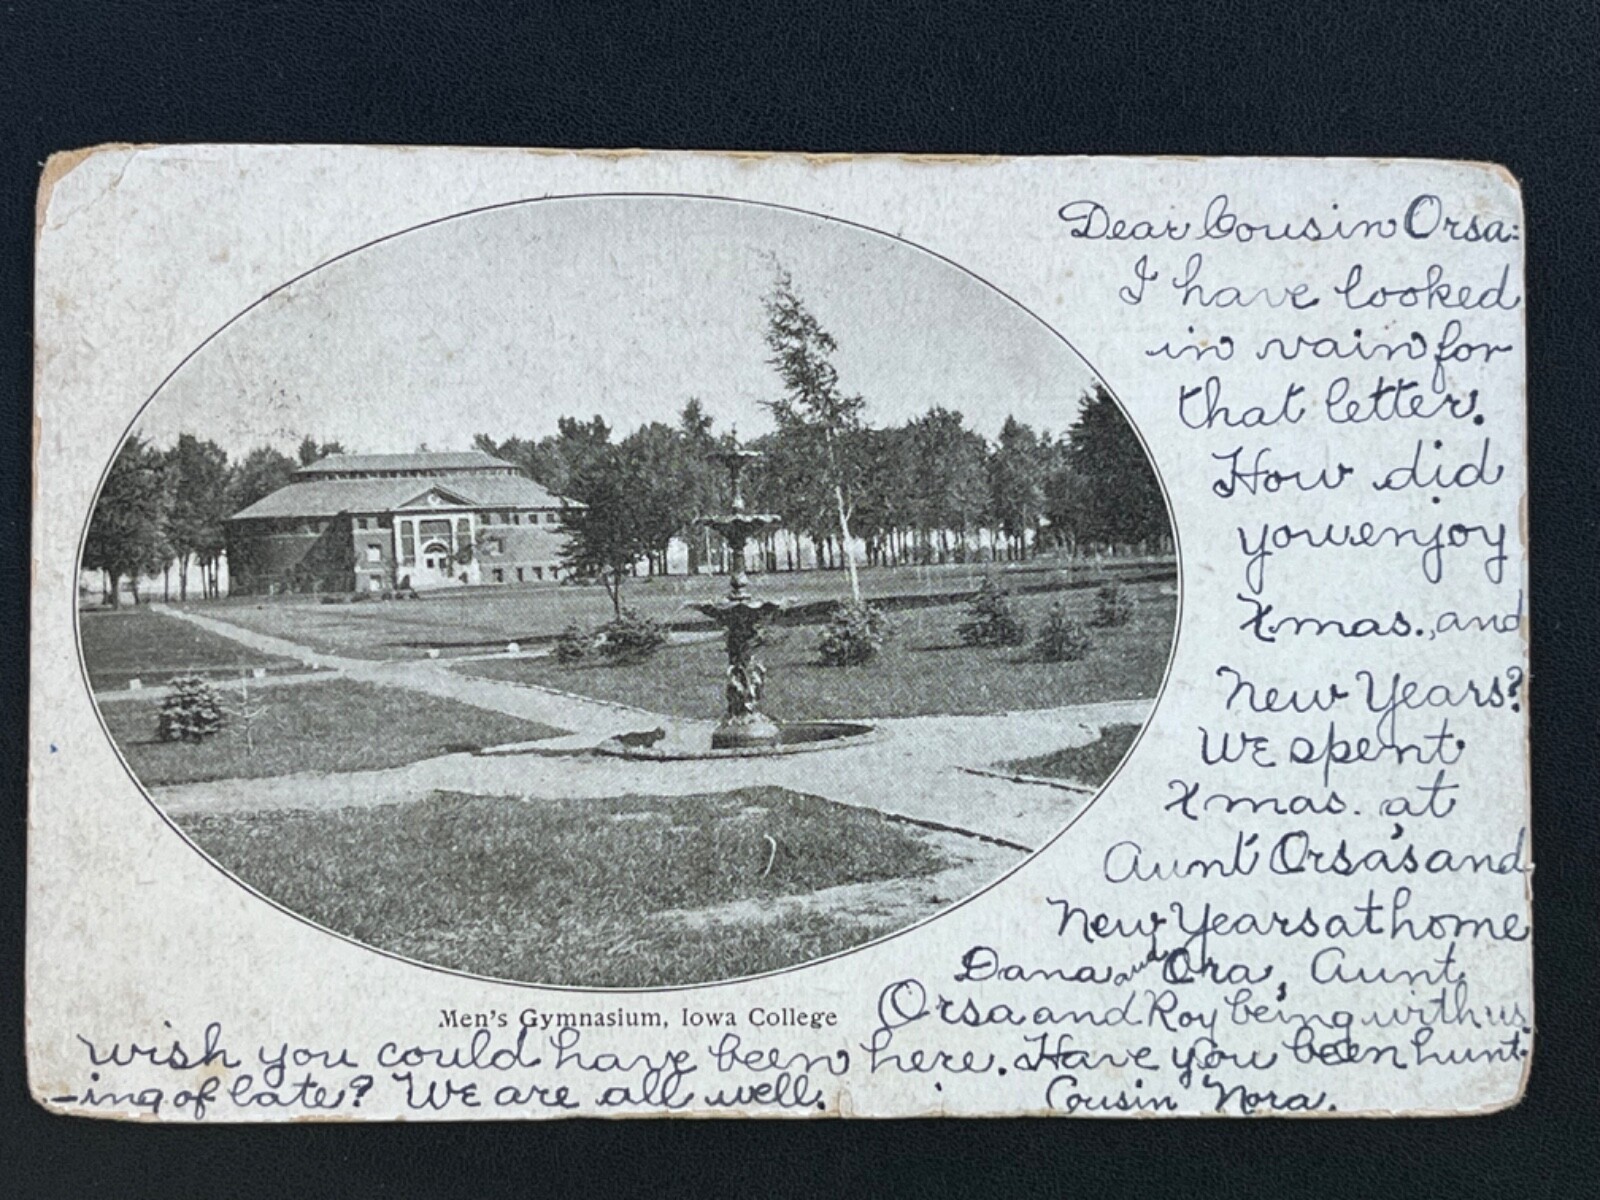 Dear Cousin Orsa:
I have looked
in vain for
that letter.
How did
you enjoy
Xmas., and
New Years?
We spent
Xmas. at
Aunt Orsa's and
New Years at home
Dana and Ora, Aunt
Orsa and Roy being with us
wish you could have been here. Have you been hunt-
-ing of late? We are all well.
Cousin Nora.
Men's Gymnasium, Iowa College